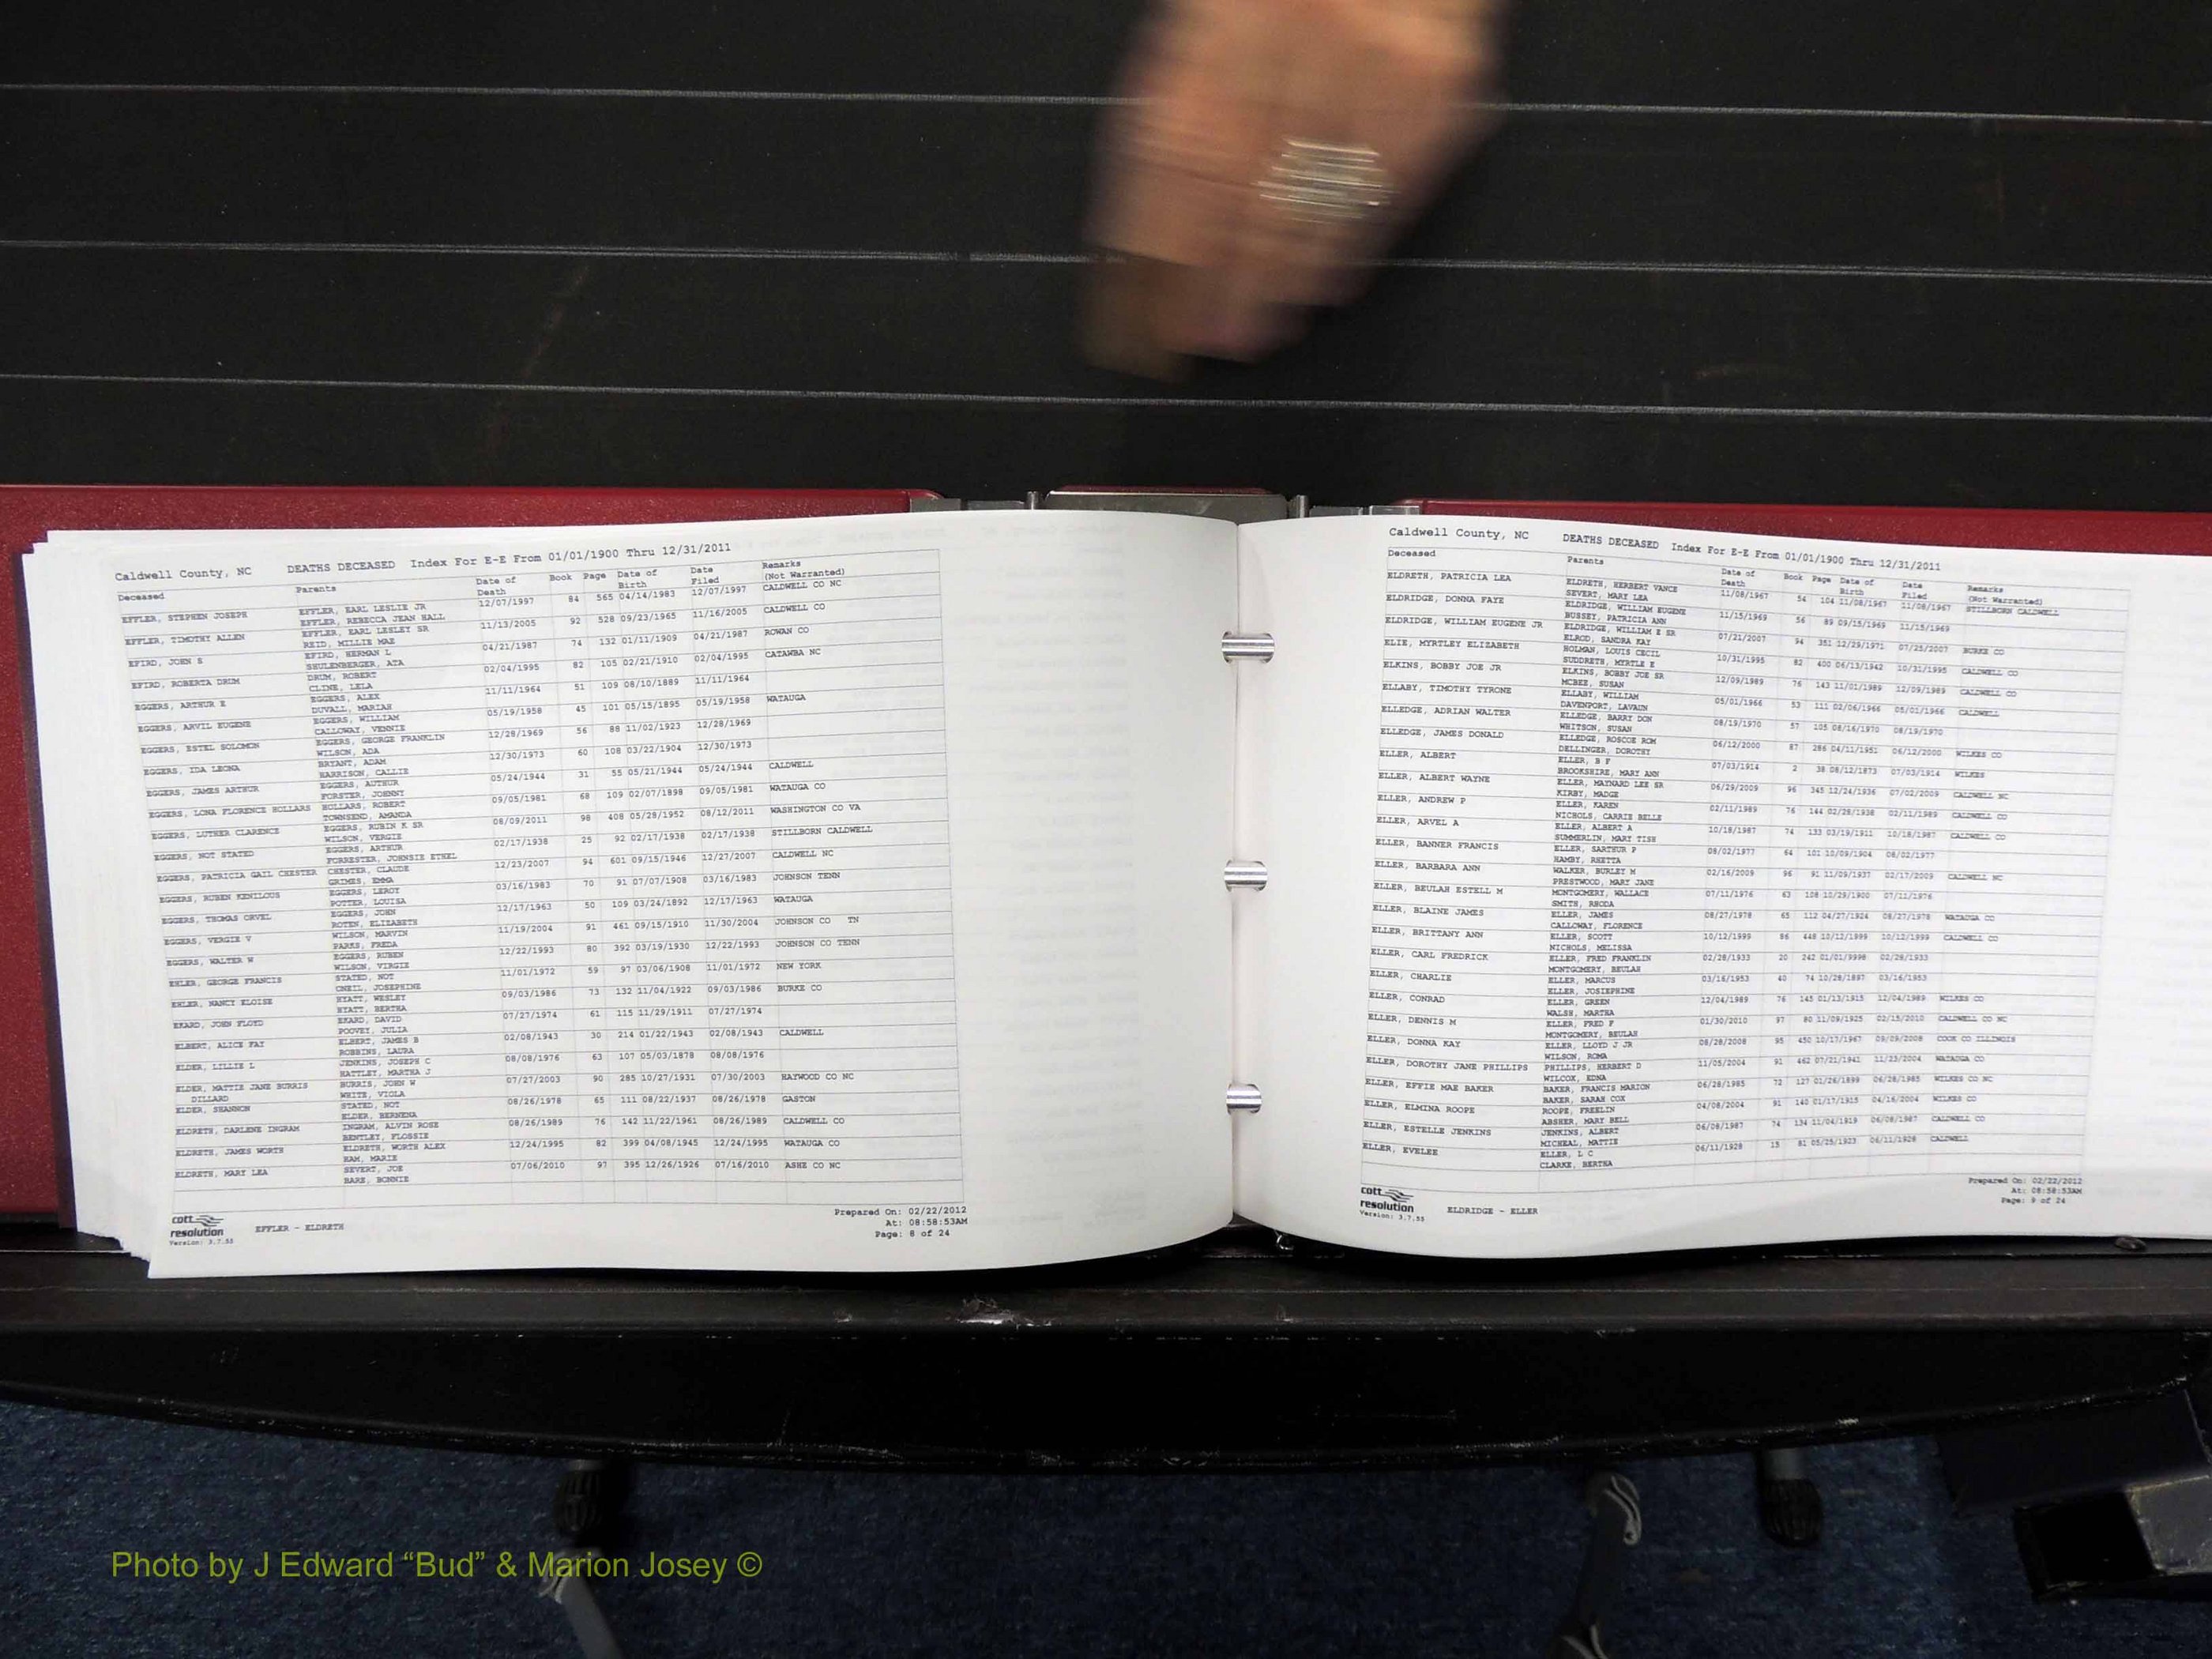 Caldwell County, NC DEATHS DECEASED Index For E-E From 01/01/1900 Thru 12/31/2011
Deceased Parents Date of Death Book Page Date of Birth Date Filed Remarks (Not Warranted)
EFFLER, STEPHEN JOSEPH EFFLER, EARL LESLIE JR 12/07/1997 84 565 04/14/1983 12/07/1997 CALDWELL CO NC
EFFLER, REBECCA JEAN HALL
EFFLER, TIMOTHY ALLEN EFFLER, EARL LESLEY SR 11/13/2005 92 528 09/23/1965 11/16/2005 CALDWELL CO
REID, MILLIE MAE
EFIRD, JOHN S EFIRD, HERMAN L 04/21/1987 74 132 01/11/1909 04/21/1987 ROWAN CO
SHULENBERGER, AZA
EFIRD, ROBERTA DRUM DRUM, ROBERT 02/04/1995 82 105 02/21/1910 02/04/1995 CATAWBA NC
CLINE, LELA
EGGERS, ARTHUR E EGGERS, ALEX 11/11/1964 51 109 08/10/1889 11/11/1964
DUVALL, MARIAH
EGGERS, ARVIL EUGENE EGGERS, WILLIAM 05/19/1958 45 101 05/15/1895 05/19/1958 WATAUGA
CALLOWAY, VENNIE
EGGERS, ESTEL SOLOMON EGGERS, GEORGE FRANKLIN 12/28/1969 56 88 11/02/1923 12/28/1969
WILSON, ADA
EGGERS, IDA LEONA BRYANT, ADAM 12/30/1973 60 108 03/22/1904 12/30/1973
HARRISON, CALLIE
EGGERS, JAMES ARTHUR EGGERS, AUTHUR 05/24/1944 31 55 05/21/1944 05/24/1944 CALDWELL
FORSTER, JOHNNY
EGGERS, LONA FLORENCE HOLLARS HOLLARS, ROBERT 09/05/1981 68 109 02/07/1898 09/05/1981 WATAUGA CO
TOWNSEND, AMANDA
EGGERS, LUTHER CLARENCE EGGERS, RUBIN K SR 08/09/2011 98 408 05/28/1952 08/12/2011 WASHINGTON CO VA
WILSON, VERGIE
EGGERS, NOT STATED EGGERS, ARTHUR 02/17/1938 25 92 02/17/1938 02/17/1938 STILLBORN CALDWELL
FORRESTER, JOHNSIE ETHEL
EGGERS, PATRICIA GAIL CHESTER CHESTER, CLAUDE 12/23/2007 94 601 09/15/1946 12/27/2007 CALDWELL NC
GRIMES, EMMA
EGGERS, RUBEN KENILOUS EGGERS, LEROY 03/16/1983 70 91 07/07/1908 03/16/1983 JOHNSON TENN
POTTER, LOUISA
EGGERS, THOMAS ORVEL EGGERS, JOHN 12/17/1963 50 109 03/24/1892 12/17/1963 WATAUGA
ROTEN, ELIZABETH
EGGERS, VERGIE V WILSON, MARVIN 11/19/2004 91 461 09/15/1910 11/30/2004 JOHNSON CO TN
PARKS, FREDA
EGGERS, WALTER W EGGERS, RUBEN 12/22/1993 80 392 03/19/1930 12/22/1993 JOHNSON CO TENN
WILSON, VIRGIE
EHLER, GEORGE FRANCIS STATED, NOT 11/01/1972 59 97 03/06/1908 11/01/1972 NEW YORK
ONEIL, JOSEPHINE
EHLER, NANCY ELOISE HYATT, WESLEY 09/03/1986 73 132 11/04/1922 09/03/1986 BURKE CO
HYATT, BERTHA
EKARD, JOHN FLOYD EKARD, DAVID 07/27/1974 61 115 11/29/1911 07/27/1974
POOVEY, JULIA
ELBERT, ALICE FAY ELBERT, JAMES B 02/08/1943 30 214 01/22/1943 02/08/1943 CALDWELL
ROBBINS, LAURA
ELDER, LILLIE L JENKINS, JOSEPH C 08/08/1976 63 107 05/03/1878 08/08/1976
HATTLEY, MARTHA J
ELDER, MATTIE JANE BURRIS BURRIS, JOHN W 07/27/2003 90 285 10/27/1931 07/30/2003 HAYWOOD CO NC
DILLARD WHITE, VIOLA
ELDER, SHANNON STATED, NOT 08/26/1978 65 111 08/22/1937 08/26/1978 GASTON
ELDER, BERNENA
ELDRETH, DARLENE INGRAM INGRAM, ALVIN ROSE 08/26/1989 76 142 11/22/1961 08/26/1989 CALDWELL CO
BENTLEY, FLOSSIE
ELDRETH, JAMES WORTH ELDRETH, WORTH ALEX 12/24/1995 82 399 04/08/1945 12/24/1995 WATAUGA CO
HAM, MARIE
ELDRETH, MARY LEA SEVERT, JOE 07/06/2010 97 395 12/26/1926 07/16/2010 ASHE CO NC
BARE, BONNIE
cott resolution Version: 3.7.55
EFFLER - ELDRETH
Prepared On: 02/22/2012
At: 08:58:53AM
Page: 8 of 24
Caldwell County, NC DEATHS DECEASED Index For E-E From 01/01/1900 Thru 12/31/2011
Deceased Parents Date of Death Book Page Date of Birth Date Filed Remarks (Not Warranted)
ELDRETH, PATRICIA LEA ELDRETH, HERBERT VANCE 11/08/1967 54 104 11/08/1967 11/08/1967 STILLBORN CALDWELL
SEVERT, MARY LEA
ELDRIDGE, DONNA FAYE ELDRIDGE, WILLIAM EUGENE 11/15/1969 56 89 09/15/1969 11/15/1969
BUSSEY, PATRICIA ANN
ELDRIDGE, WILLIAM EUGENE JR ELDRIDGE, WILLIAM E SR 07/21/2007 94 351 12/29/1971 07/25/2007 BURKE CO
ELROD, SANDRA KAY
ELIE, MYRTLEY ELIZABETH HOLMAN, LOUIS CECIL 10/31/1995 82 400 06/13/1942 10/31/1995 CALDWELL CO
SUDDRETH, MYRTLE E
ELKINS, BOBBY JOE JR ELKINS, BOBBY JOE SR 12/09/1989 76 143 11/01/1989 12/09/1989 CALDWELL CO
MCBEE, SUSAN
ELLABY, TIMOTHY TYRONE ELLABY, WILLIAM 05/01/1966 53 111 02/06/1966 05/01/1966 CALDWELL
DAVENPORT, LAVAUN
ELLEDGE, ADRIAN WALTER ELLEDGE, BARRY DON 08/19/1970 57 105 08/16/1970 08/19/1970
WHITSON, SUSAN
ELLEDGE, JAMES DONALD ELLEDGE, ROSCOE ROM 06/12/2000 87 286 04/11/1951 06/12/2000 WILKES CO
DELLINGER, DOROTHY
ELLER, ALBERT ELLER, B F 07/03/1914 2 38 08/12/1873 07/03/1914 WILKES
BROOKSHIRE, MARY ANN
ELLER, ALBERT WAYNE ELLER, MAYNARD LEE SR 06/29/2009 96 345 12/24/1936 07/02/2009 CALDWELL NC
KIRBY, MADGE
ELLER, ANDREW P ELLER, KAREN 02/11/1989 76 144 02/28/1938 02/11/1989 CALDWELL CO
NICHOLS, CARRIE BELLE
ELLER, ARVEL A ELLER, ALBERT A 10/18/1987 74 133 03/19/1911 10/18/1987 CALDWELL CO
SUMMERLIN, MARY TISH
ELLER, BANNER FRANCIS ELLER, SARTHUR P 08/02/1977 64 101 10/09/1904 08/02/1977
HAMBY, RHETTA
ELLER, BARBARA ANN WALKER, BURLEY M 02/16/2009 96 91 11/09/1937 02/17/2009 CALDWELL NC
PRESTWOOD, MARY JANE
ELLER, BEULAH ESTELL M MONTGOMERY, WALLACE 07/11/1976 63 108 10/29/1900 07/11/1976
SMITH, RHODA
ELLER, BLAINE JAMES ELLER, JAMES 08/27/1978 65 112 04/27/1924 08/27/1978 WATAUGA CO
CALLOWAY, FLORENCE
ELLER, BRITTANY ANN ELLER, SCOTT 10/12/1999 86 448 10/12/1999 10/12/1999 CALDWELL CO
NICHOLS, MELISSA
ELLER, CARL FREDRICK ELLER, FRED FRANKLIN 02/28/1933 20 242 01/01/9998 02/28/1933
MONTGOMERY, BEULAH
ELLER, CHARLIE ELLER, MARCUS 03/16/1953 40 74 10/28/1897 03/16/1953
ELLER, JOSIEPHINE
ELLER, CONRAD ELLER, GREEN 12/04/1989 76 145 01/13/1915 12/04/1989 WILKES CO
WALSH, MARTHA
ELLER, DENNIS M ELLER, FRED F 01/30/2010 97 80 11/09/1925 02/15/2010 CALDWELL CO NC
MONTGOMERY, BEULAH
ELLER, DONNA KAY ELLER, LLOYD J JR 08/28/2008 95 450 10/17/1967 09/09/2008 COOK CO ILLINOIS
WILSON, ROMA
ELLER, DOROTHY JANE PHILLIPS PHILLIPS, HERBERT D 11/05/2004 91 462 07/21/1941 11/23/2004 WATAUGA CO
WILCOX, EDNA
ELLER, EFFIE MAE BAKER BAKER, FRANCIS MARION 06/28/1985 72 127 01/26/1899 06/28/1985 WILKES CO NC
BAKER, SARAH COX
ELLER, ELMINA ROOPE ROOPE, FREELIN 04/08/2004 91 140 01/17/1915 04/16/2004 WILKES CO
ABSHER, MARY BELL
ELLER, ESTELLE JENKINS JENKINS, ALBERT 06/08/1987 74 134 11/04/1919 06/08/1987 CALDWELL CO
MICHEAL, MATTIE
ELLER, EVELEE ELLER, L C 06/11/1928 15 81 05/25/1923 06/11/1928 CALDWELL
CLARKE, BERTHA
cott resolution Version: 3.7.55
ELDRIDGE - ELLER
Prepared On: 02/22/2012
At: 08:58:53AM
Page: 9 of 24
Photo by J Edward “Bud” & Marion Josey ©